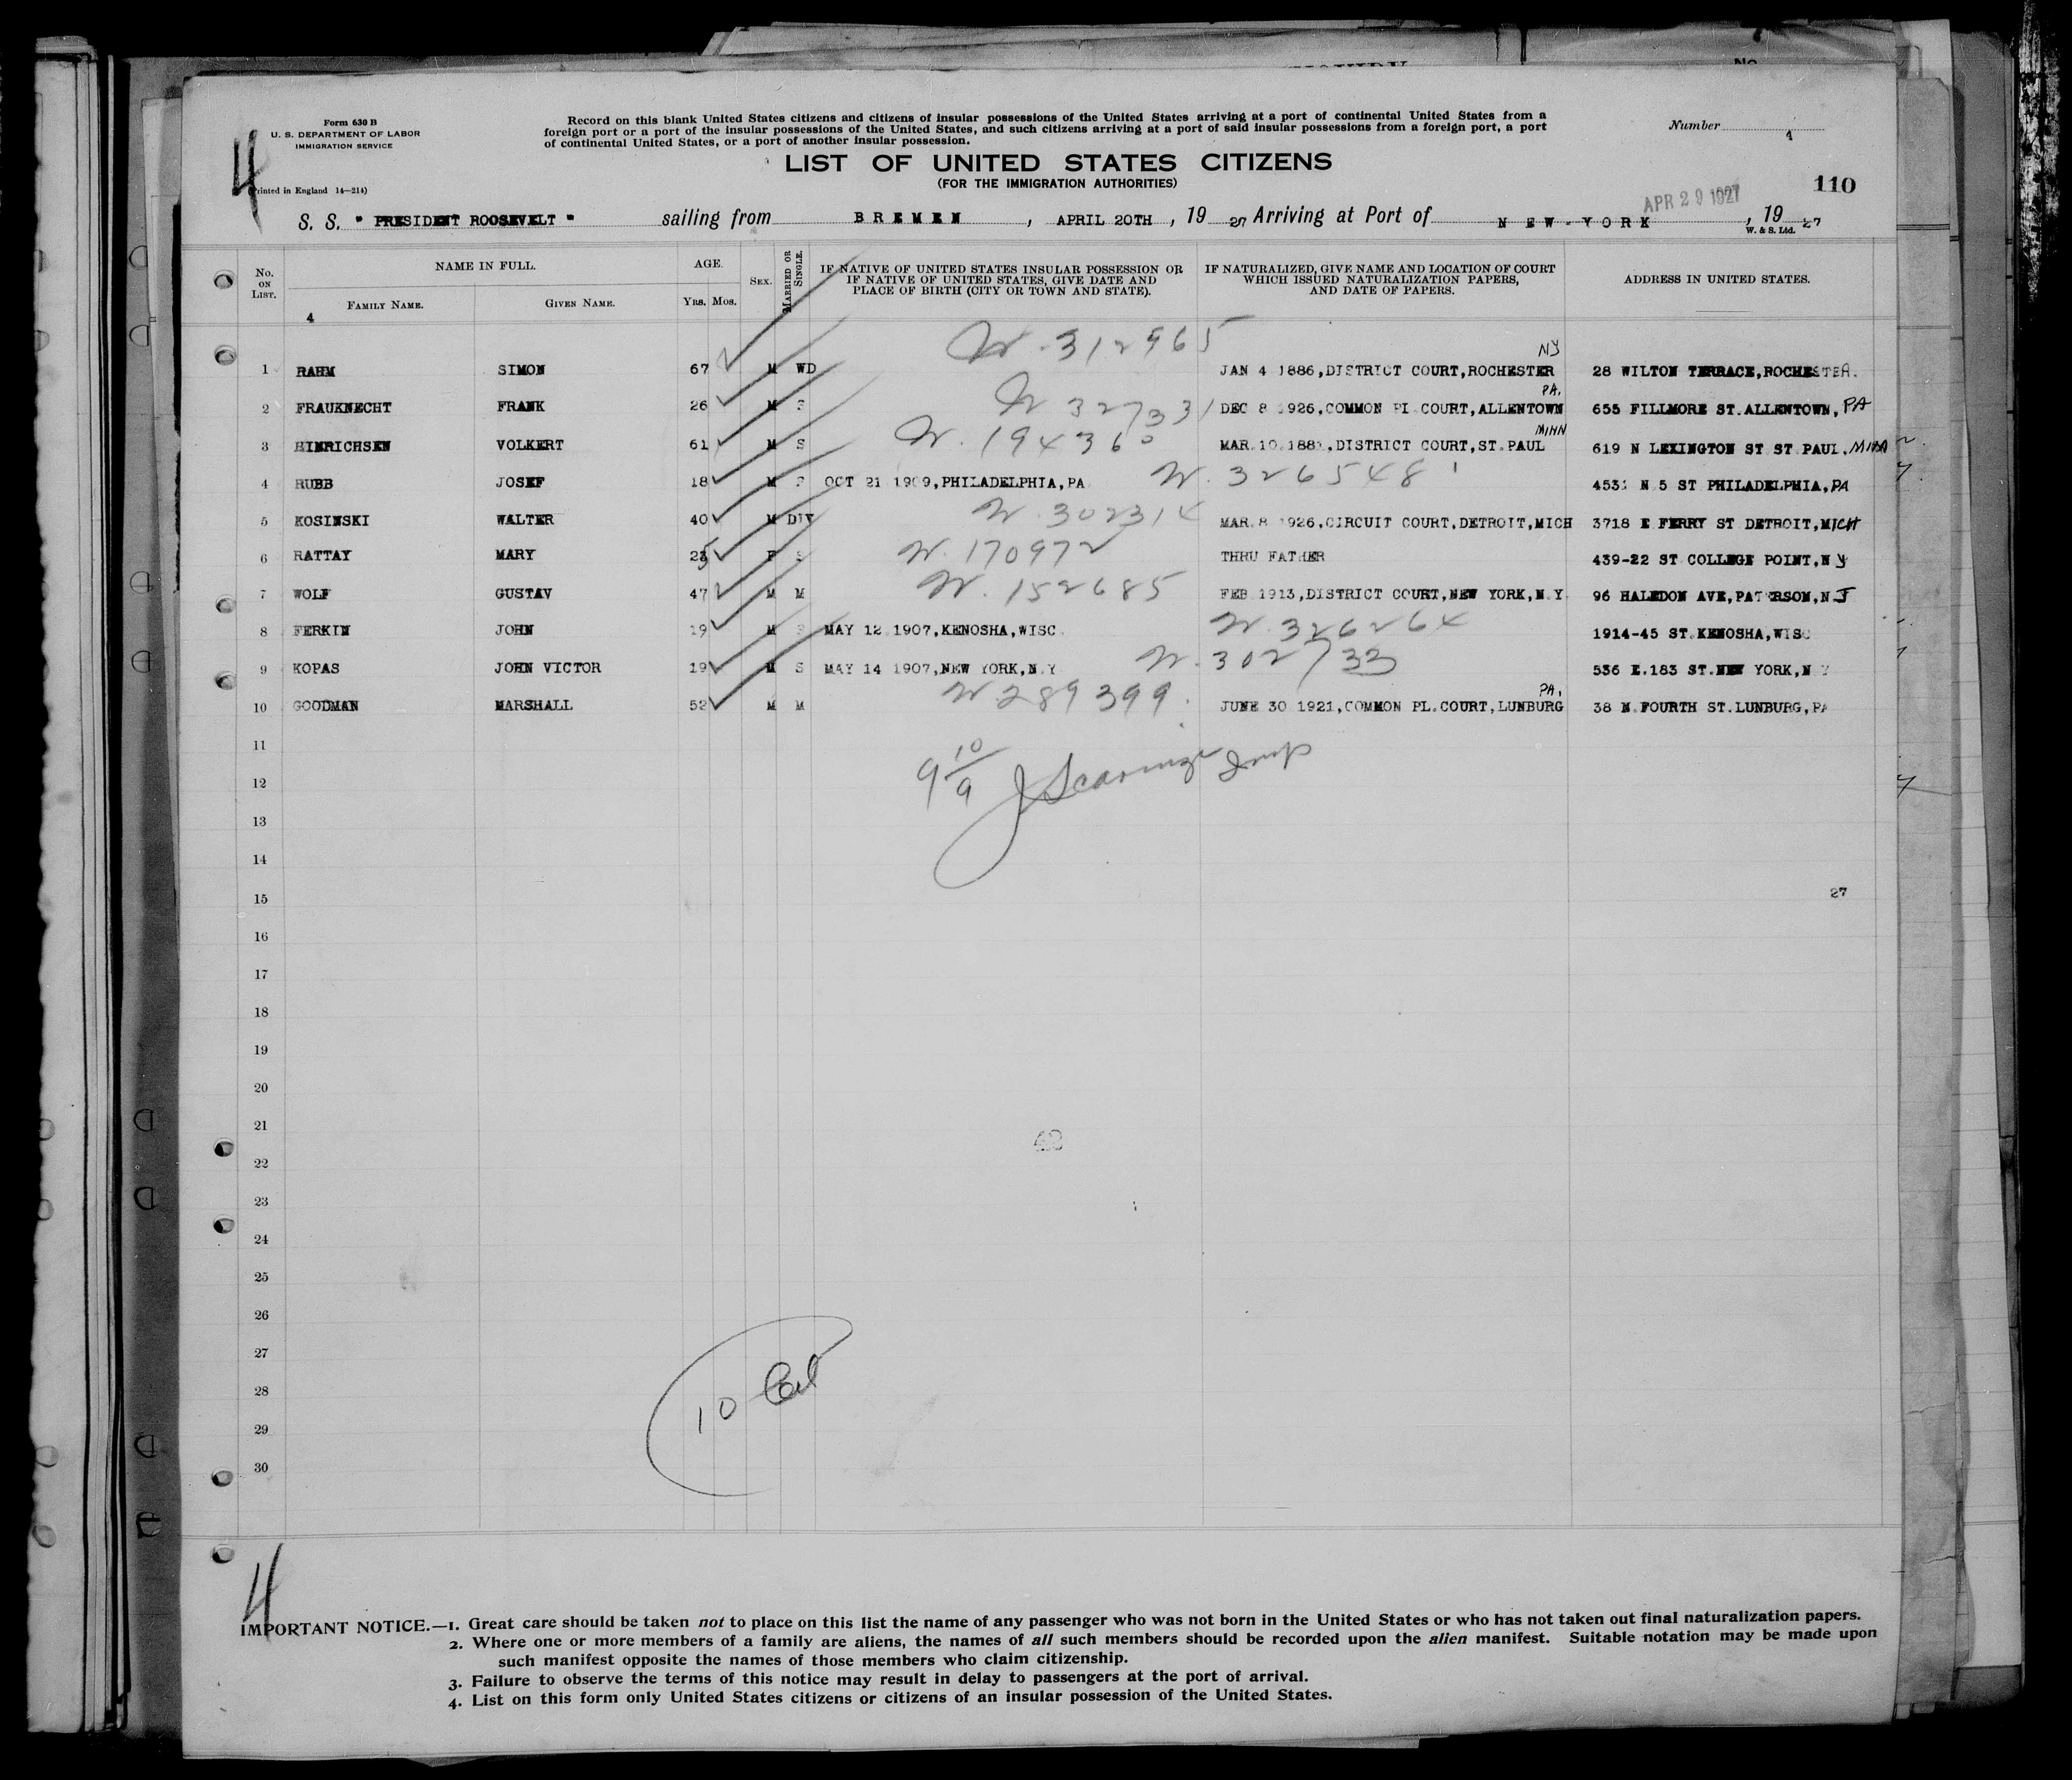 Form 630 B
U. S. DEPARTMENT OF LABOR
IMMIGRATION SERVICE
4
Printed in England 14—214)
Record on this blank United States citizens and citizens of insular possessions of the United States arriving at a port of continental United States from a
foreign port or a port of the insular possessions of the United States, and such citizens arriving at a port of said insular possessions from a foreign port, a port
of continental United States, or a port of another insular possession.
Number 4
LIST OF UNITED STATES CITIZENS
(FOR THE IMMIGRATION AUTHORITIES)
110
APR 29 1927
S. S. " PRESIDENT ROOSEVELT " sailing from BREMEN, APRIL 20TH, 19 27 Arriving at Port of NEW-YORK, 19 27
W. & S. Ltd.
No. ON LIST. NAME IN FULL. FAMILY NAME. GIVEN NAME. AGE. Yrs. Mos. SEX. MARRIED OR SINGLE. IF NATIVE OF UNITED STATES INSULAR POSSESSION OR IF NATIVE OF UNITED STATES, GIVE DATE AND PLACE OF BIRTH (CITY OR TOWN AND STATE). IF NATURALIZED, GIVE NAME AND LOCATION OF COURT WHICH ISSUED NATURALIZATION PAPERS, AND DATE OF PAPERS. ADDRESS IN UNITED STATES.
4
1 RAHM SIMON 67 M WD N. 312965 JAN 4 1886,DISTRICT COURT,ROCHESTER NY 28 WILTON TERRACE,ROCHESTER.
2 FRAUKNECHT FRANK 26 M S N 327331 DEC 8 1926,COMMON PL COURT,ALLENTOWN PA. 655 FILLMORE ST.ALLENTOWN, PA
3 HINRICHSEN VOLKERT 61 M S N. 194360 MAR.10.188 ,DISTRICT COURT,ST.PAUL MINN 619 N LEXINGTON ST ST PAUL.MINN
4 RUBB JOSEF 18 M S OCT 21 1909,PHILADELPHIA,PA N. 326548 4531 N 5 ST PHILADELPHIA,PA
5 KOSINSKI WALTER 40 M DIV N. 302314 MAR.8 1926,CIRCUIT COURT,DETROIT,MICH 3718 E FERRY ST DETROIT,MICH
6 RATTAY MARY 25 F S N. 170972 THRU FATHER 439-22 ST COLLEGE POINT,N Y
7 WOLF GUSTAV 47 M M N. 152685 FEB 1913,DISTRICT COURT,NEW YORK,N.Y. 96 HALEDON AVE,PATERSON,N.J
8 FERKIN JOHN 19 M S MAY 12 1907,KENOSHA,WISC. N. 326264 1914-45 ST.KENOSHA,WISC
9 KOPAS JOHN VICTOR 19 M S MAY 14 1907,NEW YORK,N.Y N. 302733 536 E.183 ST.NEW YORK,N Y
10 GOODMAN MARSHALL 52 M M N. 289399 JUNE 30 1921,COMMON PL.COURT,LUNBURG PA. 38 N.FOURTH ST.LUNBURG,PA
11
12 9 10/9
13
14
15 27
16
17
18
19
20
21
22
23
24
25
26
27
28 10
29
30
4
IMPORTANT NOTICE.—1. Great care should be taken not to place on this list the name of any passenger who was not born in the United States or who has not taken out final naturalization papers.
2. Where one or more members of a family are aliens, the names of all such members should be recorded upon the alien manifest. Suitable notation may be made upon
such manifest opposite the names of those members who claim citizenship.
3. Failure to observe the terms of this notice may result in delay to passengers at the port of arrival.
4. List on this form only United States citizens or citizens of an insular possession of the United States.